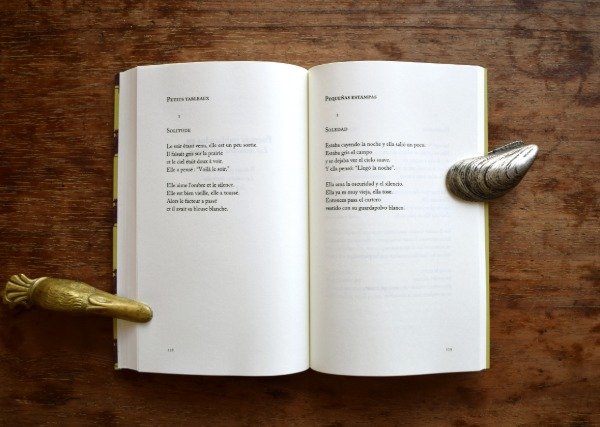 PETITS TABLEAUX
1
SOLITUDE
Le soir étant venu, elle est un peu sortie.
Il faisait gris sur la prairie
et le ciel était doux à voir.
Elle a pensé: "Voilà le soir."
Elle aime l'ombre et le silence.
Elle est bien vieille, elle a toussé.
Alors le facteur a passé
et il avait sa blouse blanche.
PEQUEÑAS ESTAMPAS
1
SOLEDAD
Estaba cayendo la noche y ella salió un poco.
Estaba gris el campo
y se dejaba ver el cielo suave.
Y ella pensó: "Llegó la noche".
Ella ama la oscuridad y el silencio.
Ella ya es muy vieja, ella tose.
Entonces pasa el cartero
vestido con su guardapolvo blanco.